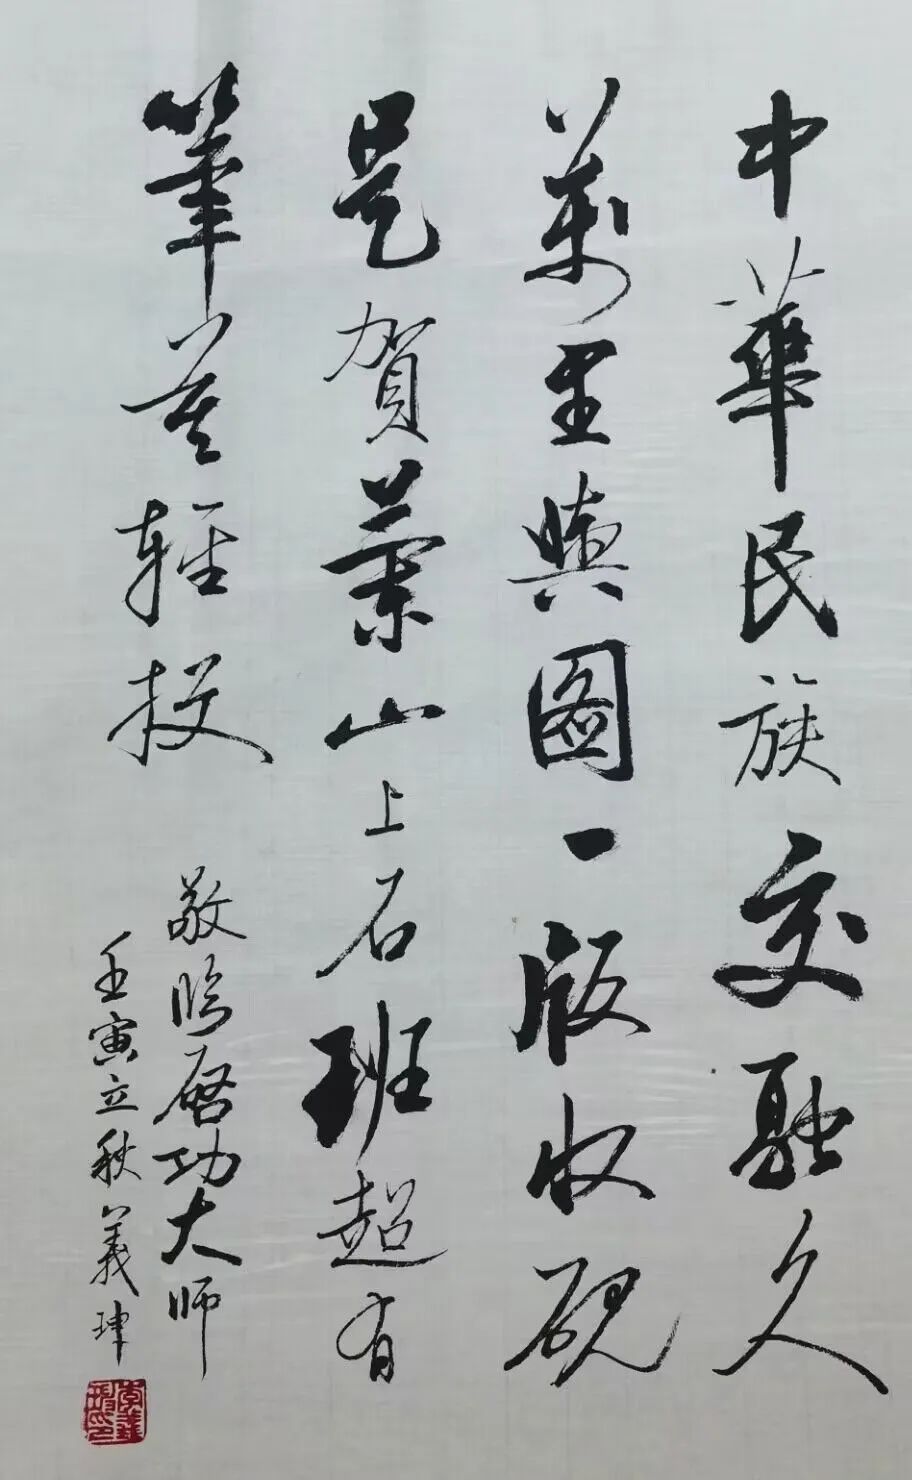 中華民族交融久
萬里輿圖一版收硯
是賀蘭山上石班超有
筆莫輕投
敬临启功大师
壬寅立秋義珒